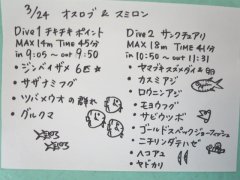 3/24 オスロブ & スミロン
Dive 1 チキチキ ポイント
MAX 14m TIME 45分
in 9:05 〜 out 9:50
・ジンベイザメ 6匹
・サザナミフグ
・ツバメウオの群れ
・グルクマ
Dive 2 サンクチュアリ
MAX 18m TIME 41分
in 10:50 〜 out 11:31
・ヤマブキスズメダイ
・カスミアジ
・ロウニンアジ
・モヨウフグ
・サビウツボ
・ゴールドスペックジョーフィッシュ
・ニチリンダテハゼ
・ヘコアユ
・ヤドカリ